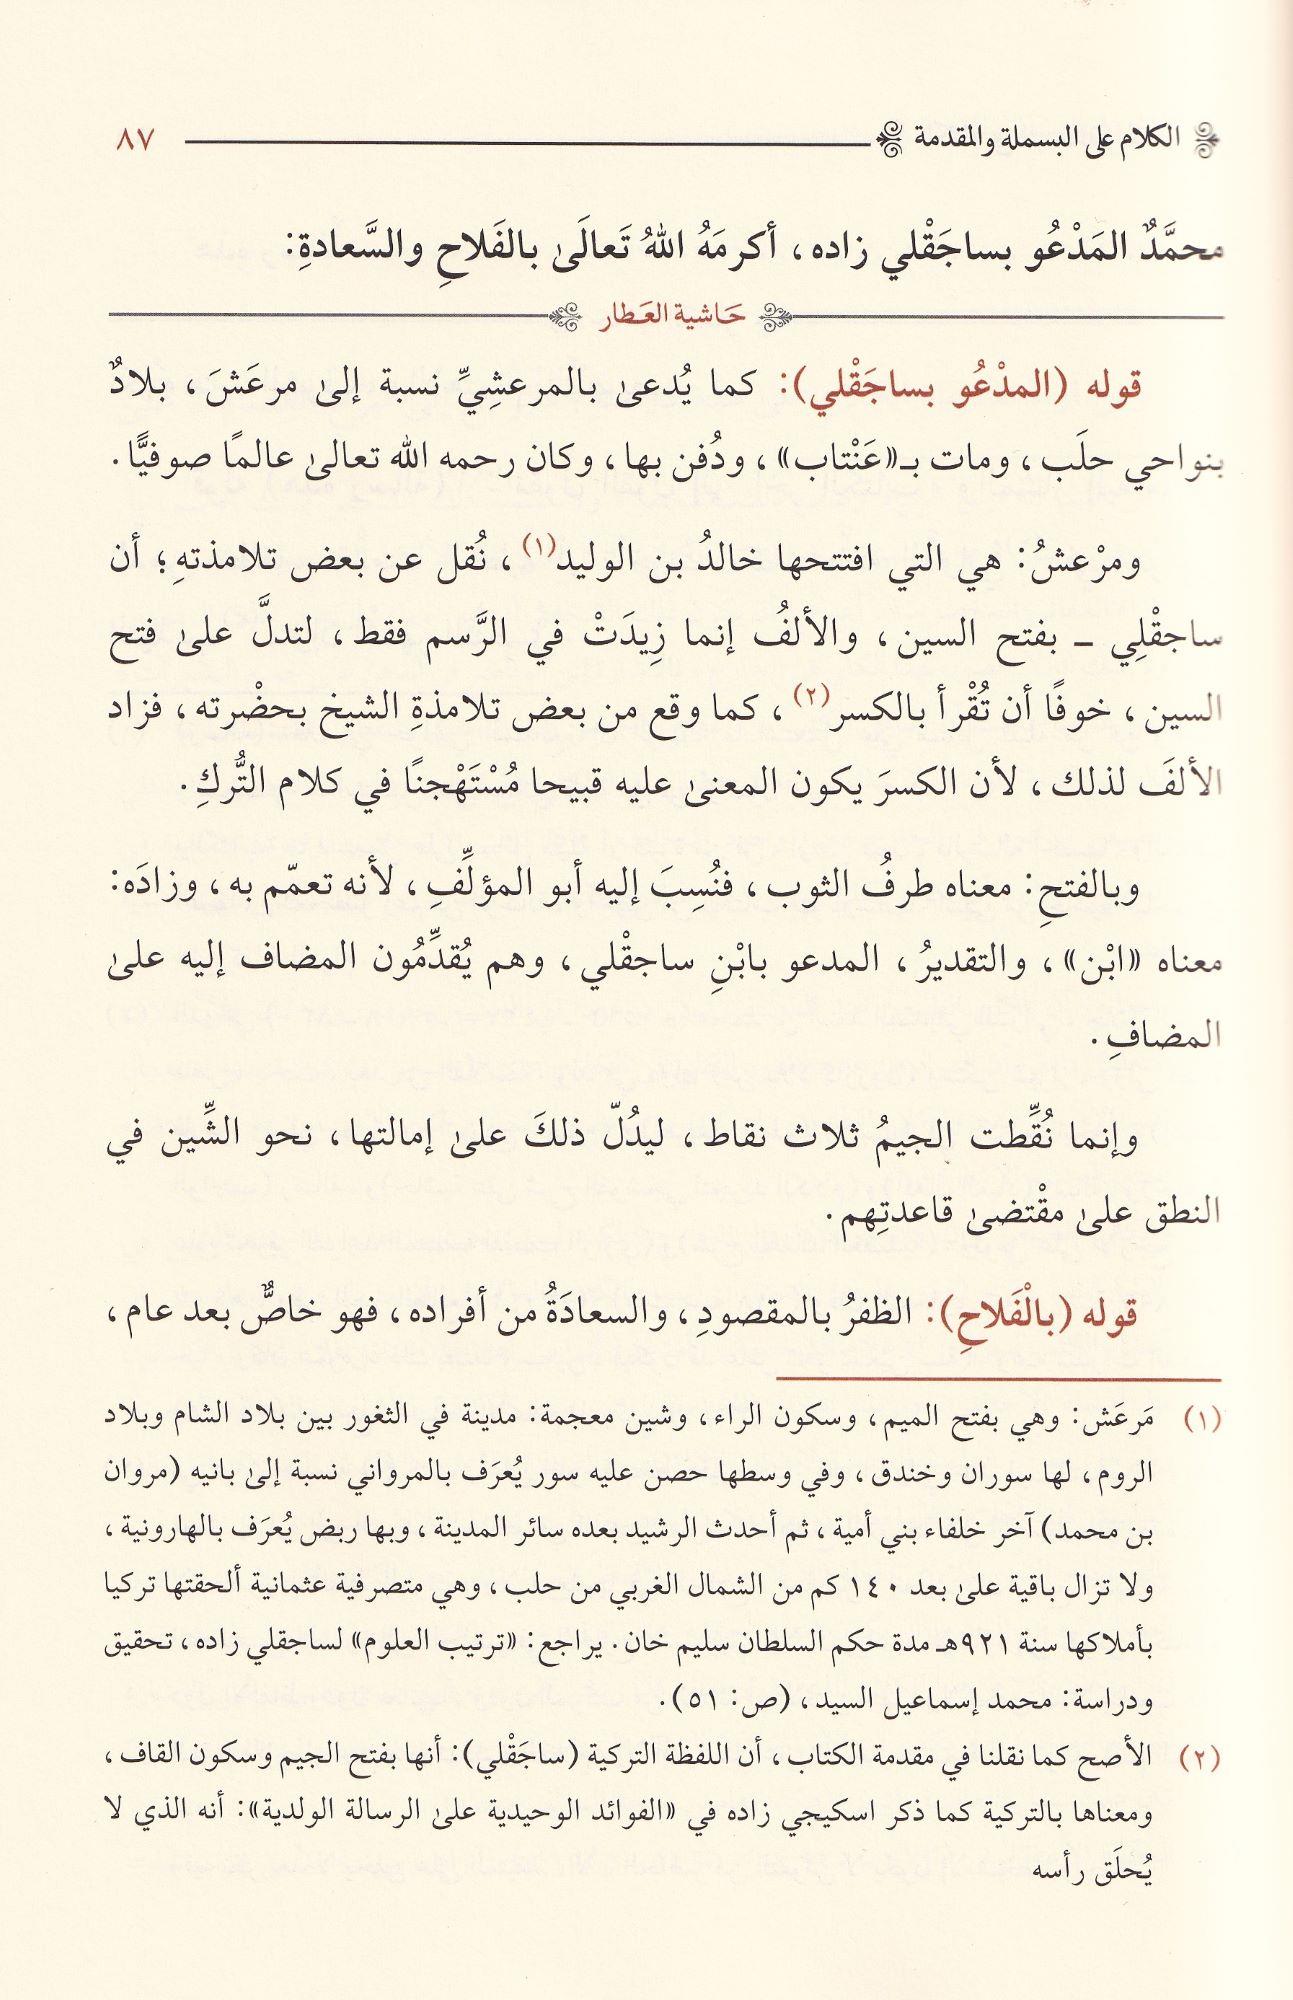 الكلام على البسملة والمقدمة ٨٧
محمَّدٌ المَدْعُو بساجَقْلي زاده، أكرمَهُ اللهُ تَعالَىٰ بالفَلاحِ والسَّعادةِ:
حَاشية العَطار
قوله (المدْعُو بساجَقْلي): كما يُدعىٰ بالمرعشِيِّ نسبة إلىٰ مرعَشَ، بلادٌ
بنواحي حلَب، ومات بـ«عَنْتاب»، ودُفن بها، وكان رحمه الله تعالىٰ عالمًا صوفيًّا.
ومرْعشُ: هي التي افتتحها خالدُ بن الوليد(١)، نُقل عن بعض تلامذتهِ؛ أن
ساجقْلِي ـ بفتح السين، والألفُ إنما زِيدَتْ في الرَّسم فقط، لتدلَّ علىٰ فتح
السين، خوفًا أن تُقْرأ بالكسر(٢)، كما وقع من بعض تلامذةِ الشيخ بحضْرته، فزاد
الألفَ لذلك، لأن الكسرَ يكون المعنىٰ عليه قبيحا مُسْتَهْجنًا في كلام التُّركِ.
وبالفتحِ: معناه طرفُ الثوب، فنُسِبَ إليه أبو المؤلِّفِ، لأنه تعمّم به، وزادَه:
معناه «ابْن»، والتقديرُ، المدعو بابْنِ ساجقْلي، وهم يُقدِّمُون المضاف إليه علىٰ
المضافِ.
وإنما نُقِّطت الجيمُ ثلاث نقاط، ليدُلّ ذلكَ علىٰ إمالتها، نحو الشِّين في
النطق علىٰ مقْتضىٰ قاعدتِهم.
قوله (بالْفَلاحِ): الظفرُ بالمقصودِ، والسعادَةُ من أفراده، فهو خاصٌّ بعد عام،
(١) مَرعَش: وهي بفتح الميم، وسكون الراء، وشين معجمة: مدينة في الثغور بين بلاد الشام وبلاد
الروم، لها سوران وخندق، وفي وسطها حصن عليه سور يُعرَف بالمرواني نسبة إلىٰ بانيه (مروان
بن محمد) آخر خلفاء بني أمية، ثم أحدث الرشيد بعده سائر المدينة، وبها ربض يُعرَف بالهارونية،
ولا تزال باقية علىٰ بعد ١٤٠ كم من الشمال الغربي من حلب، وهي متصرفية عثمانية ألحقتها تركيا
بأملاكها سنة ٩٢١هـ مدة حكم السلطان سليم خان. يراجع: «ترتيب العلوم» لساجقلي زاده، تحقيق
ودراسة: محمد إسماعيل السيد، (ص: ٥١).
(٢) الأصح كما نقلنا في مقدمة الكتاب، أن اللفظة التركية (ساجَقْلي): أنها بفتح الجيم وسكون القاف،
ومعناها بالتركية كما ذكر اسكيجي زاده في «الفوائد الوحيدية علىٰ الرسالة الولدية»: أنه الذي لا
يُحلَق رأسه